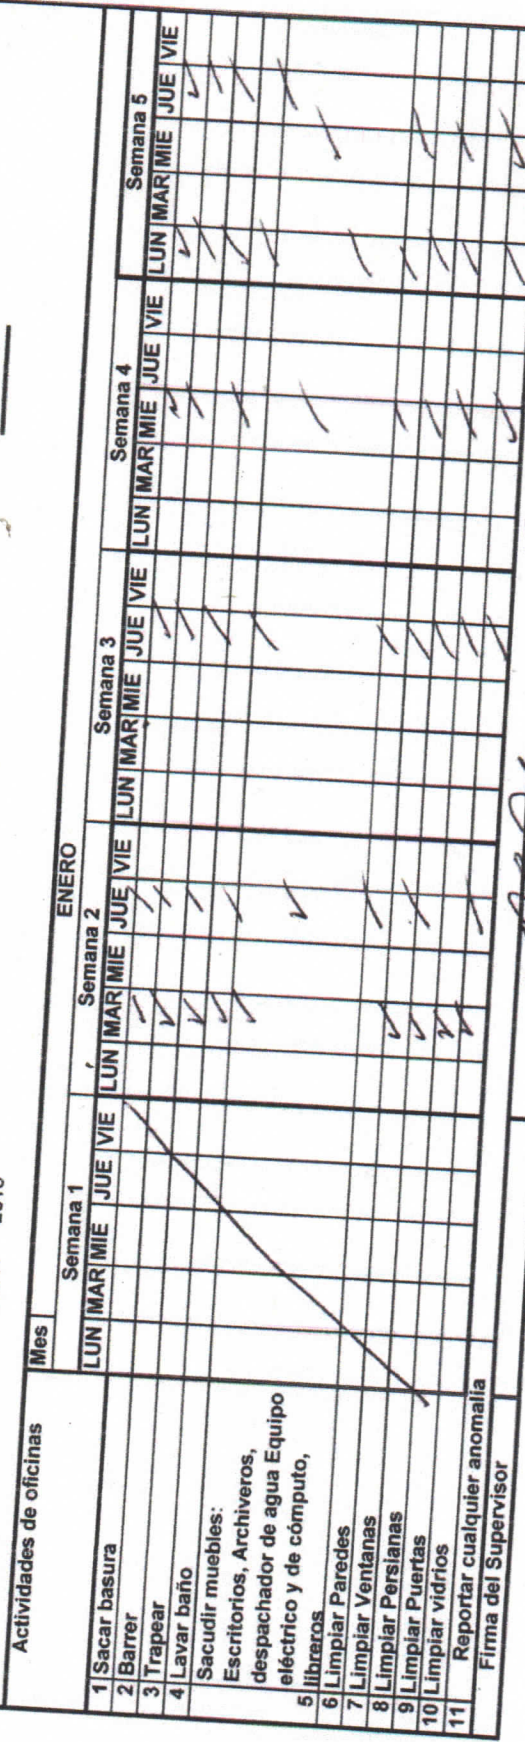 Actividades de oficinas
Mes
ENERO
Semana 1
Semana 2
Semana 3
Semana 4
Semana 5
LUN MAR MIE JUE VIE LUN MAR MIE JUE VIE LUN MAR MIE JUE VIE LUN MAR MIE JUE VIE LUN MAR MIE JUE VIE
1 Sacar basura
2 Barrer
3 Trapear
4 Lavar baño
Sacudir muebles:
Escritorios, Archiveros,
despachador de agua Equipo
eléctrico y de cómputo,
5 libreros
6 Limpiar Paredes
7 Limpiar Ventanas
8 Limpiar Persianas
9 Limpiar Puertas
10 Limpiar vidrios
11 Reportar cualquier anomalia
Firma del Supervisor